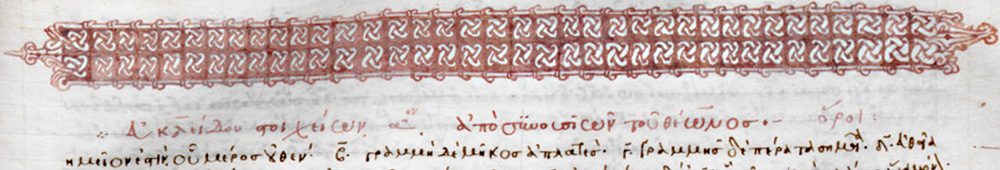 Εὐκλείδου στοιχείων αον ἀπὸ συνουσιῶν τοῦ θέωνος ὅροι:
ημεῖον ἐστὶν οὗ μέρος οὐθέν· β. γραμμὴ δὲ μῆκος ἀπλατές· γ. γραμμῆς δὲ πέρατα σημεῖα· δ. εὐθεῖα